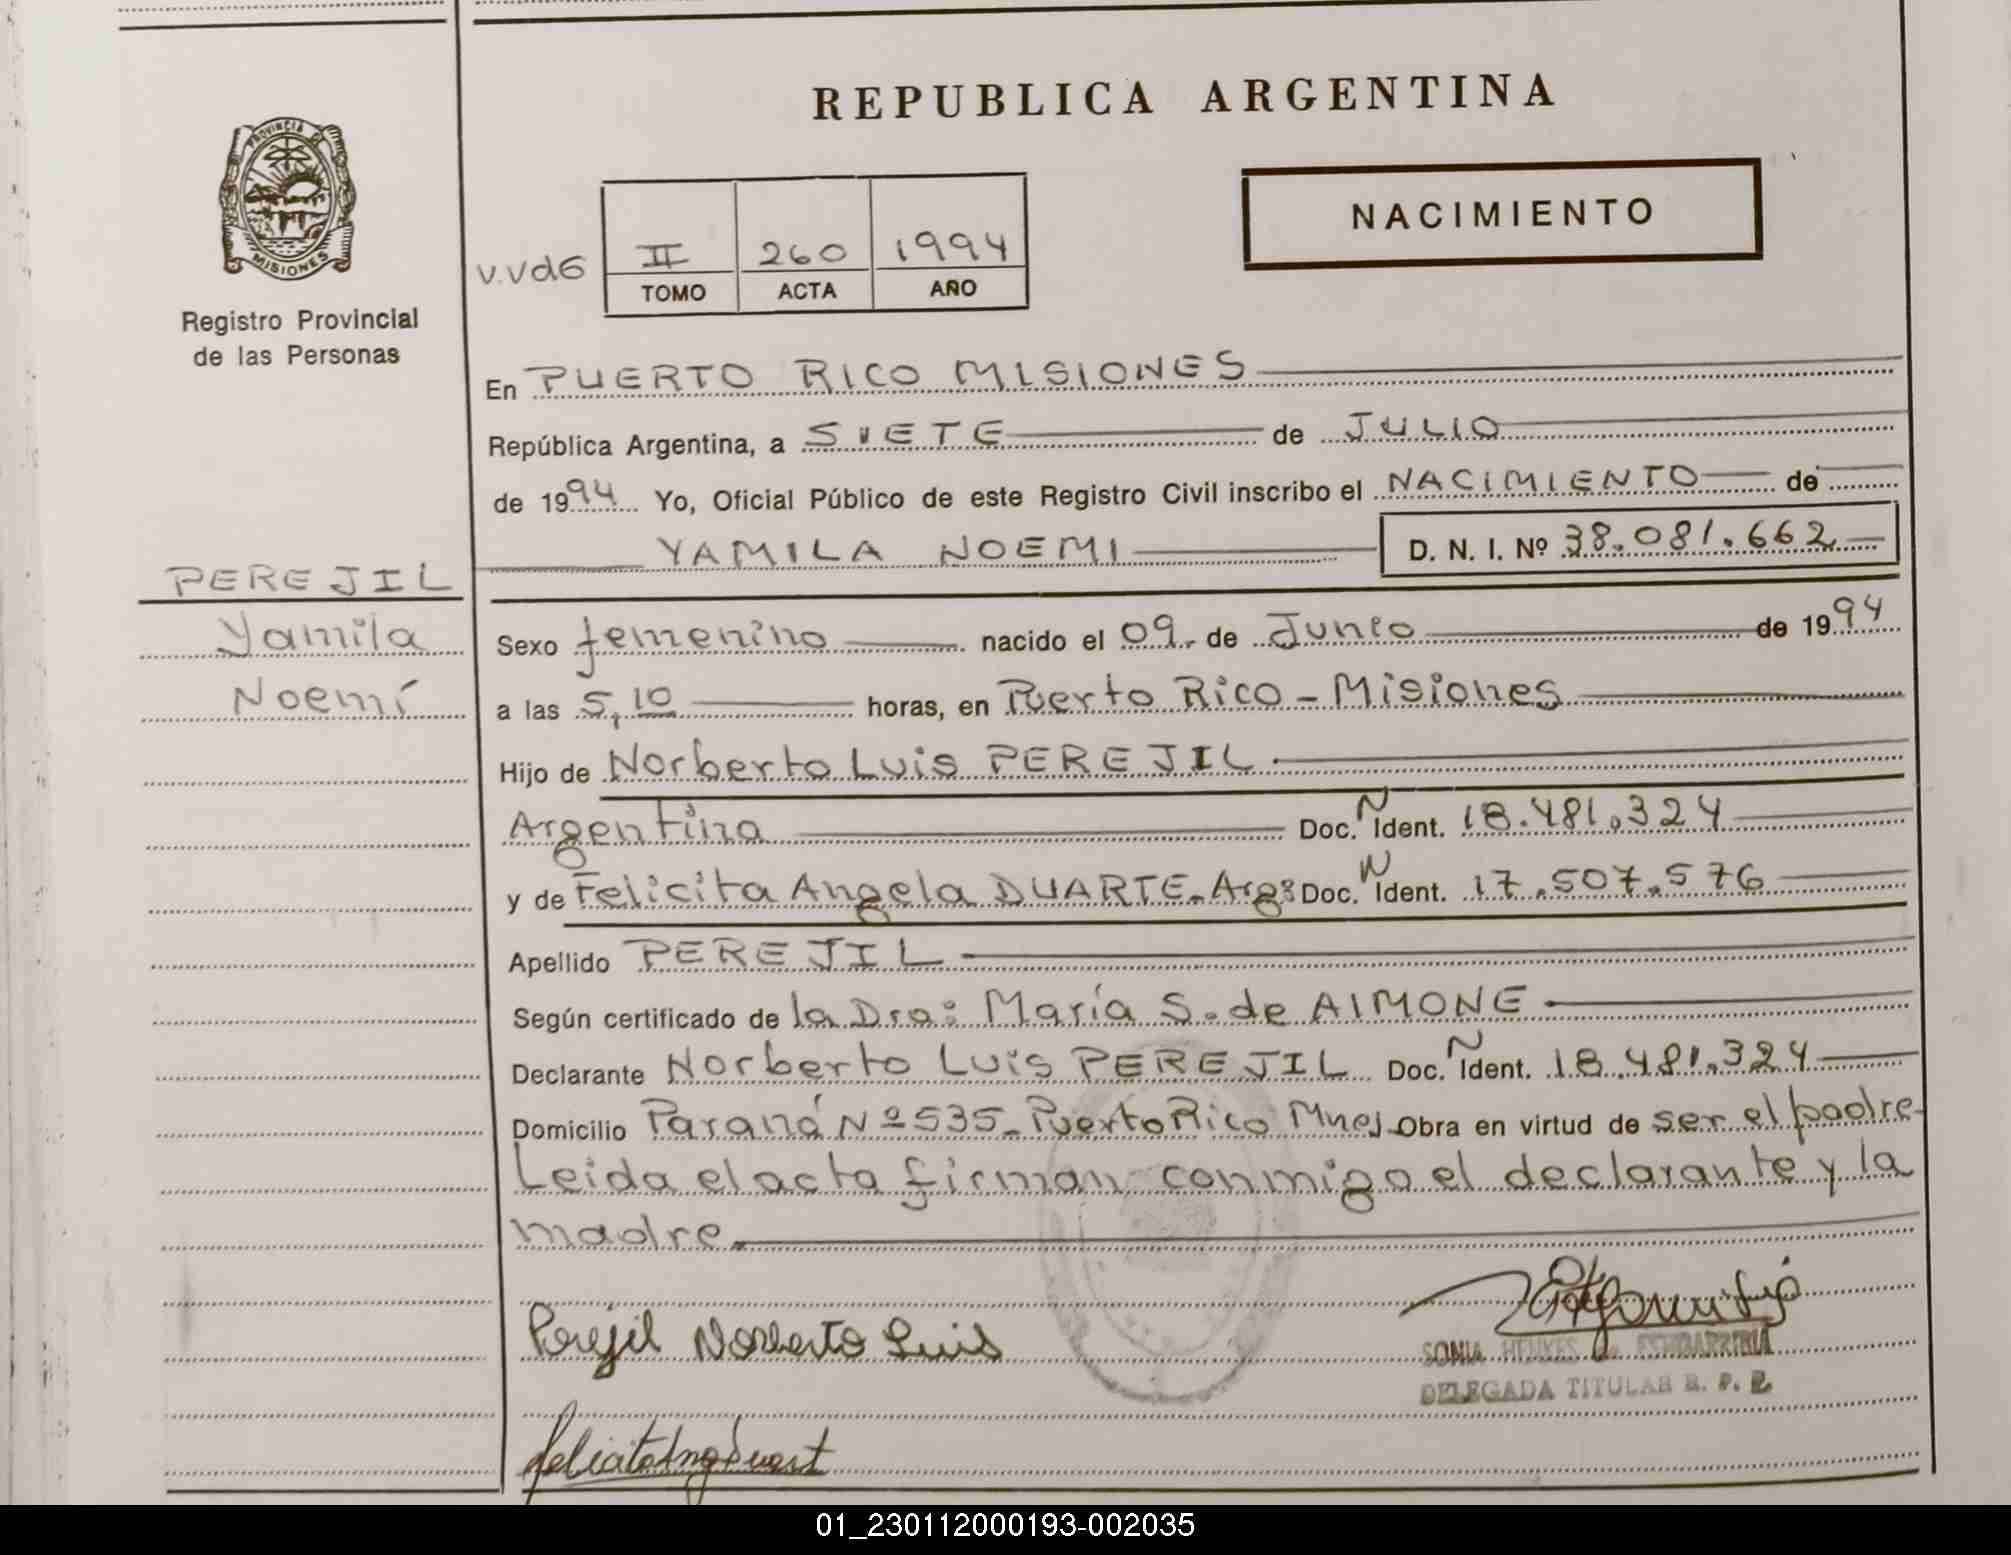 REPUBLICA ARGENTINA
PROVINCIA DE
MISIONES
Registro Provincial
de las Personas
NACIMIENTO
v.vd6
II 260 1994
TOMO ACTA AÑO
En PUERTO RICO MISIONES
República Argentina, a SIETE de JULIO
de 1994 Yo, Oficial Público de este Registro Civil inscribo el NACIMIENTO de
YAMILA NOEMI D. N. I. Nº 38.081.662
PEREJIL
Yamila
Noemí
Sexo femenino nacido el 09 de Junio de 1994
a las 5,10 horas, en Puerto Rico - Misiones
Hijo de Norberto Luis PEREJIL
Argentina Doc. N Ident. 18.481.324
y de Felicita Angela DUARTE - Arg: Doc. N Ident. 17.507.576
Apellido PEREJIL
Según certificado de la Dra: María S. de AIMONE
Declarante Norberto Luis PEREJIL Doc. N Ident. 18.481.324
Domicilio Paraná Nº 535 - Puerto Rico Mnes Obra en virtud de ser el padre
Leida el acta firman conmigo el declarante y la
madre.
Perejil Norberto Luis
SONIA
DELEGADA TITULAR R. P. P.
01_230112000193-002035